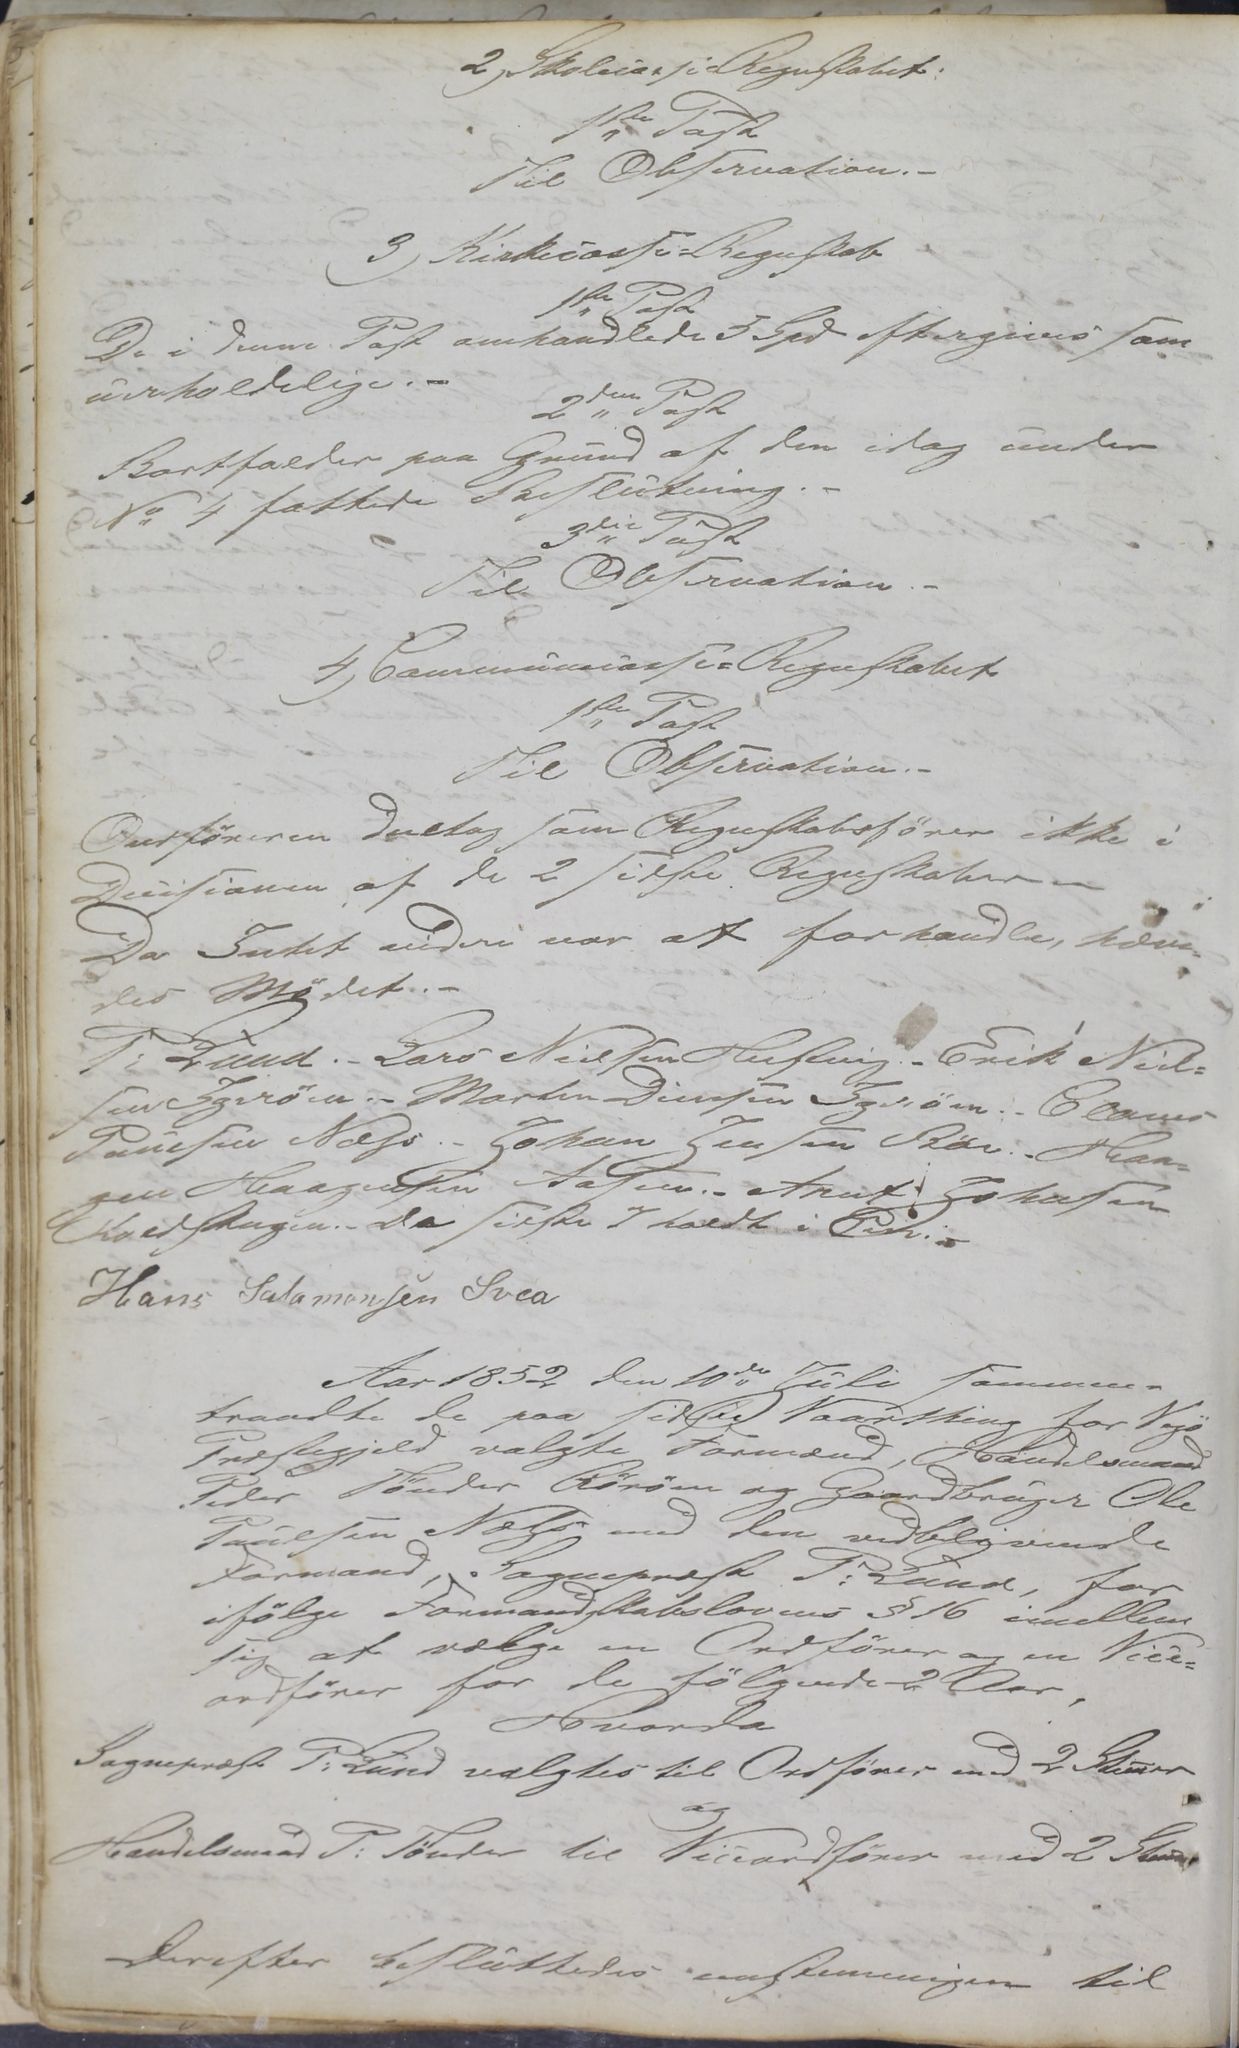 2, Skolecasse Regnskabet:
1ste Post
Til Observation.-
3, Kirkecasse-Regnskab
1ste Post
De i denne Post omhandlede 5 Spd eftergives som
uerholdelige.-
2den Post
Bortfalder paa Grund af den idag under
No 4 fattede Beslutning.-
3die Post
Til Observation.-
4, Communecasse-Regnskabet
1ste Post
Til Observation.-
Ordföreren deeltog som Regnskabsförer ikke i
Decisionen af de 2 sidste Regnskaber
Da Intet videre var at forhandle, hæve-
des Mödet.-
P: Lund.- Lars Nielsen .- Erik Niel-
sen Igeröen.- Martin Igeröen.-
Paulsen Næss.- Johan Jensen .- Haa-
gen Haagensen Aasen.- Arnt Johnsen
.- De sidste 7 holdt i Pen.-
Hans Salamonsen Svea
Aar 1852 den 10de Juli sammen-
traadte de paa sidste Vaarthing for Vegö
Præstegjeld valgte Formænd, Handelsmand
Peder Tönder Röröen og Gaardbruger Ole
Paulsen Næss med den vedblivende
Formand, Sognepræst P: Lund, for
ifölge Formandskabslovens § 16 imellem
sig at vælge en Ordförer og en Vice-
ordförer for de fölgende 2 Aar,
Hvorda
Sognepræst P: Lund valgtes til Ordförer med 2 Stemer
og
Handelsmand P: Tönder til Viceordförer med 2 Stemer
Derefter besluttedes eenstemmigen til